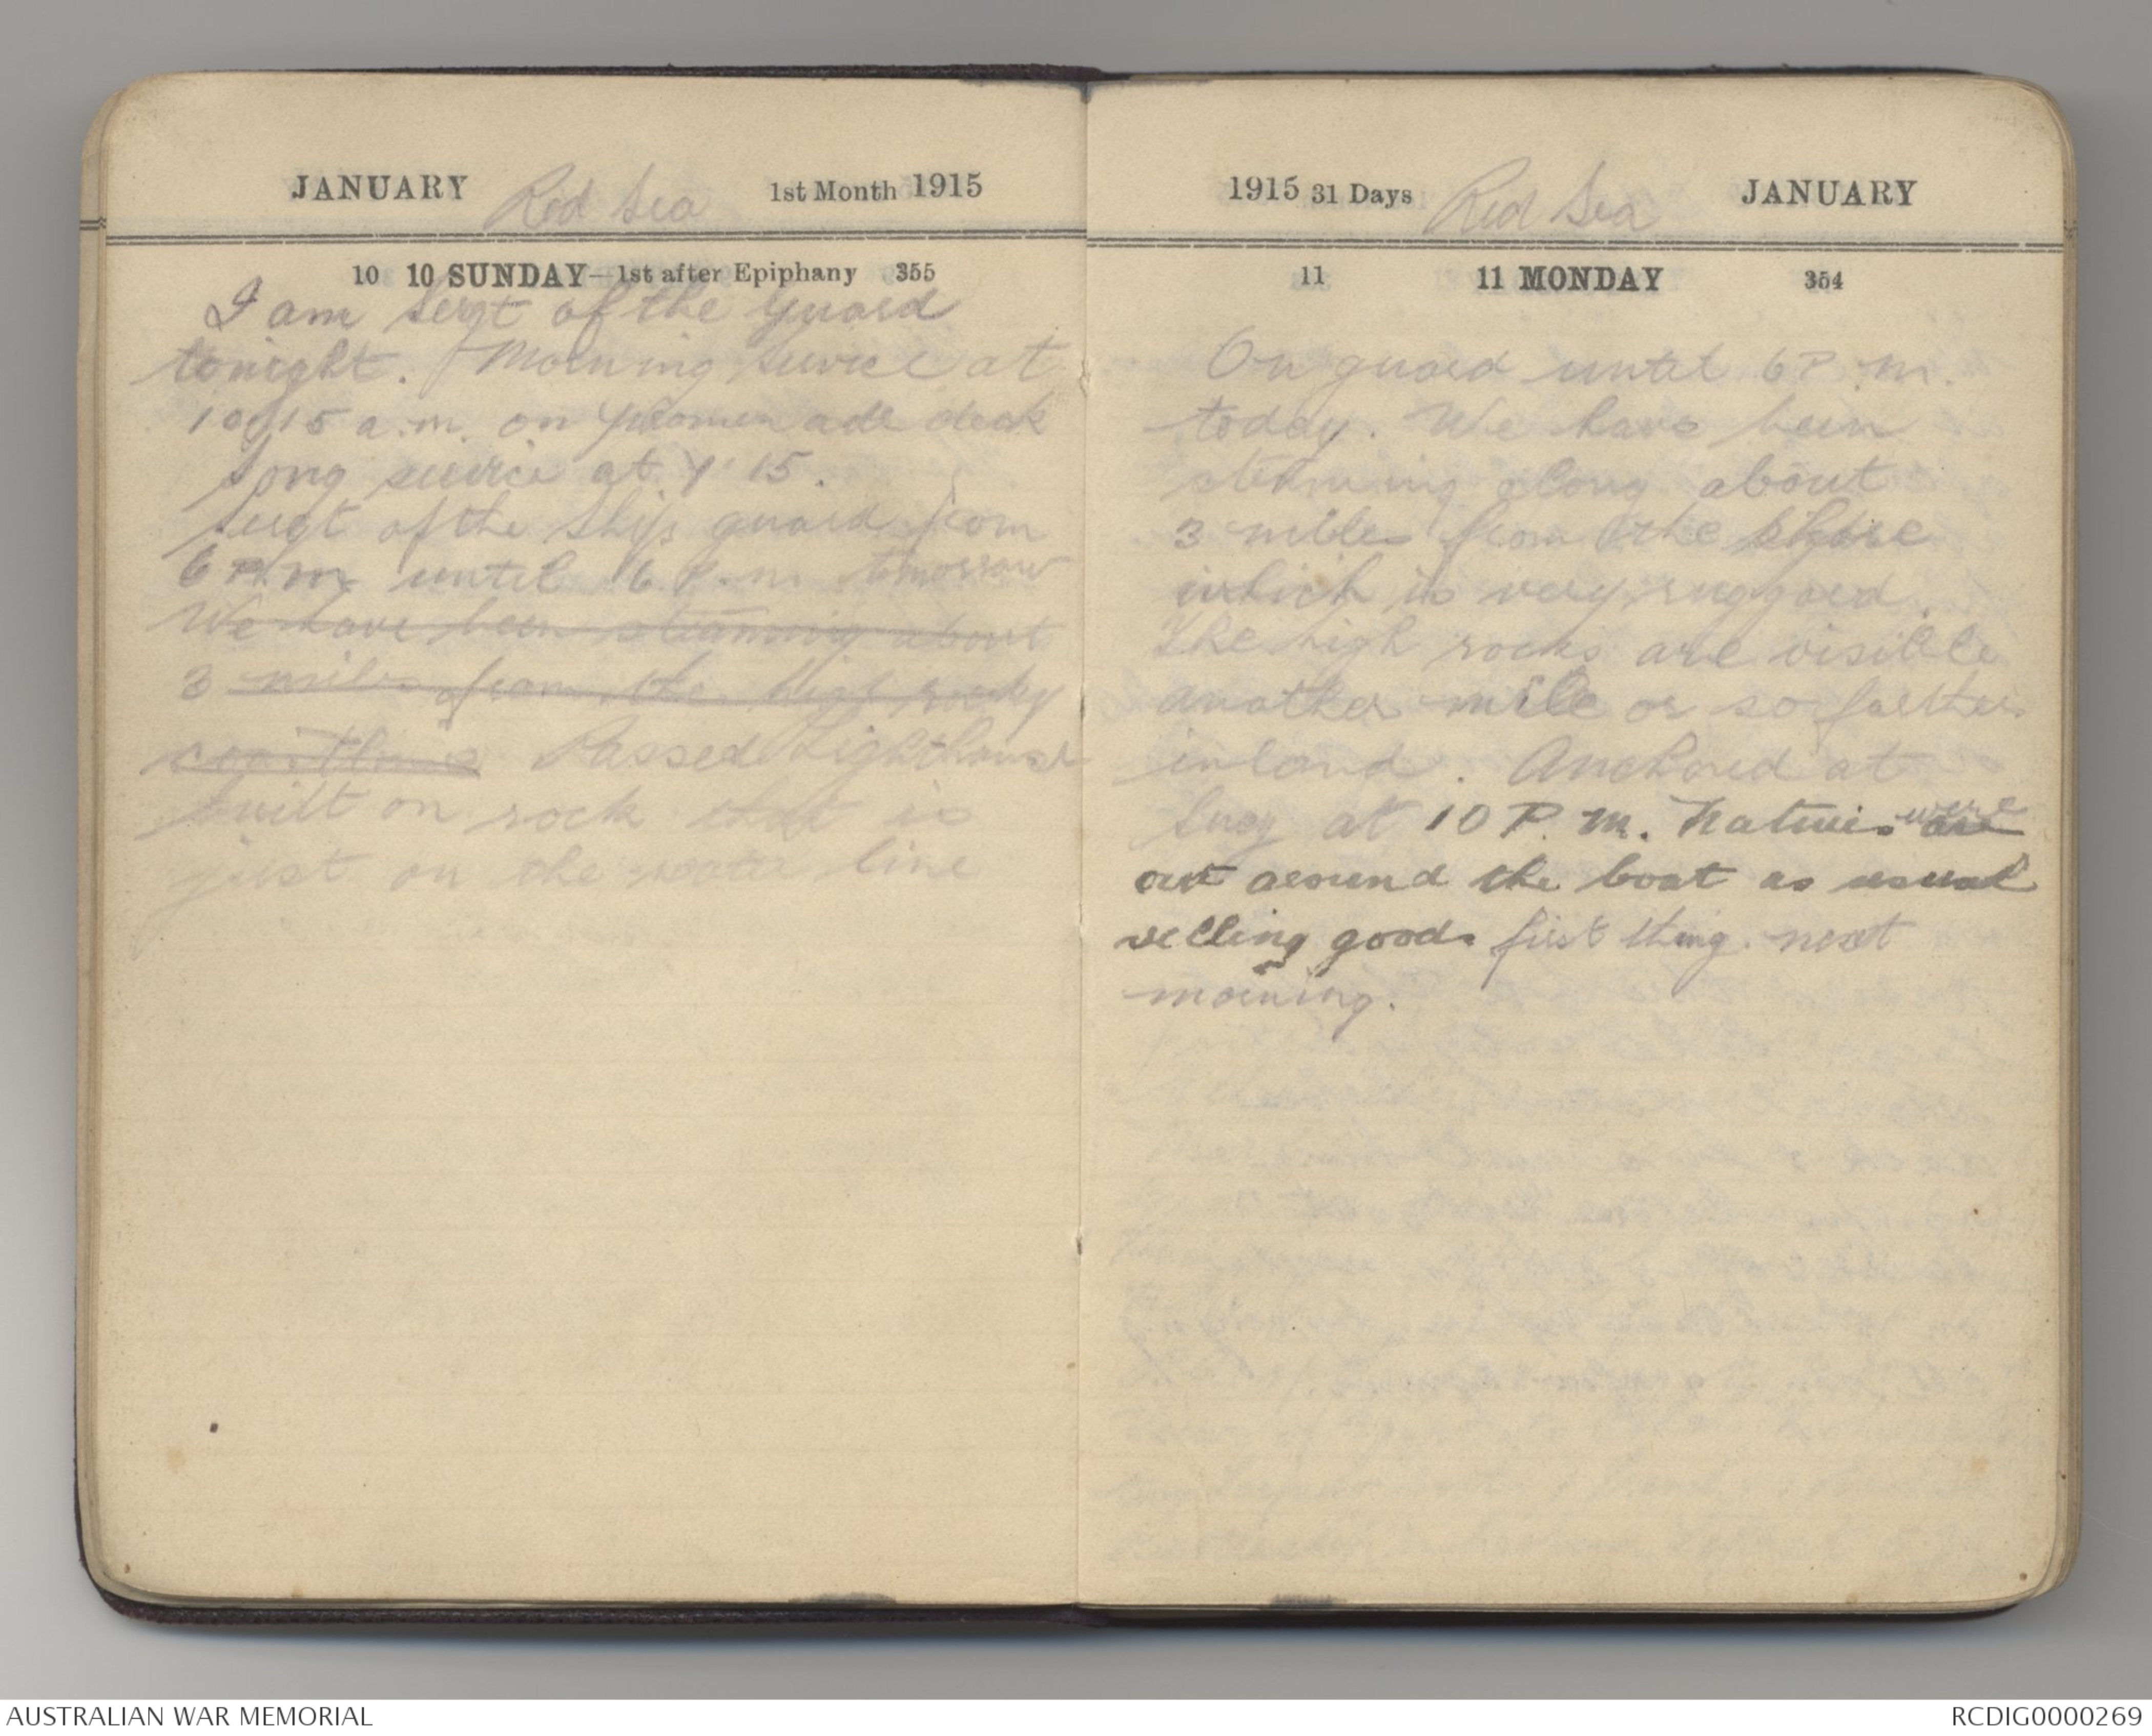 JANUARY Red Sea 1st Month 1915
10 10 SUNDAY—1st after Epiphany 355
I am Sergt of the Guard
tonight. Morning service at
10.15 a.m. on promenade deck
Song service at 7.15.
Sergt of the Ships guard from
6 P.m. until 6 P.m. tomorrow
We have been steaming about
3 miles from the high rocky
coastline Passed Lighthouse
built on rock that is
just on the water line
1915 31 Days Red Sea JANUARY
11 11 MONDAY 354
On guard until 6 P.m.
today. We have been
steaming along about
3 miles from the shore
which is very ruggard.
The high rocks are visible
another mile or so farther
inland. Anchored at
Suez at 10 P.m. Natives were are
out around the boat as usual
selling goods first thing next
morning.
AUSTRALIAN WAR MEMORIAL
RCDIG0000269